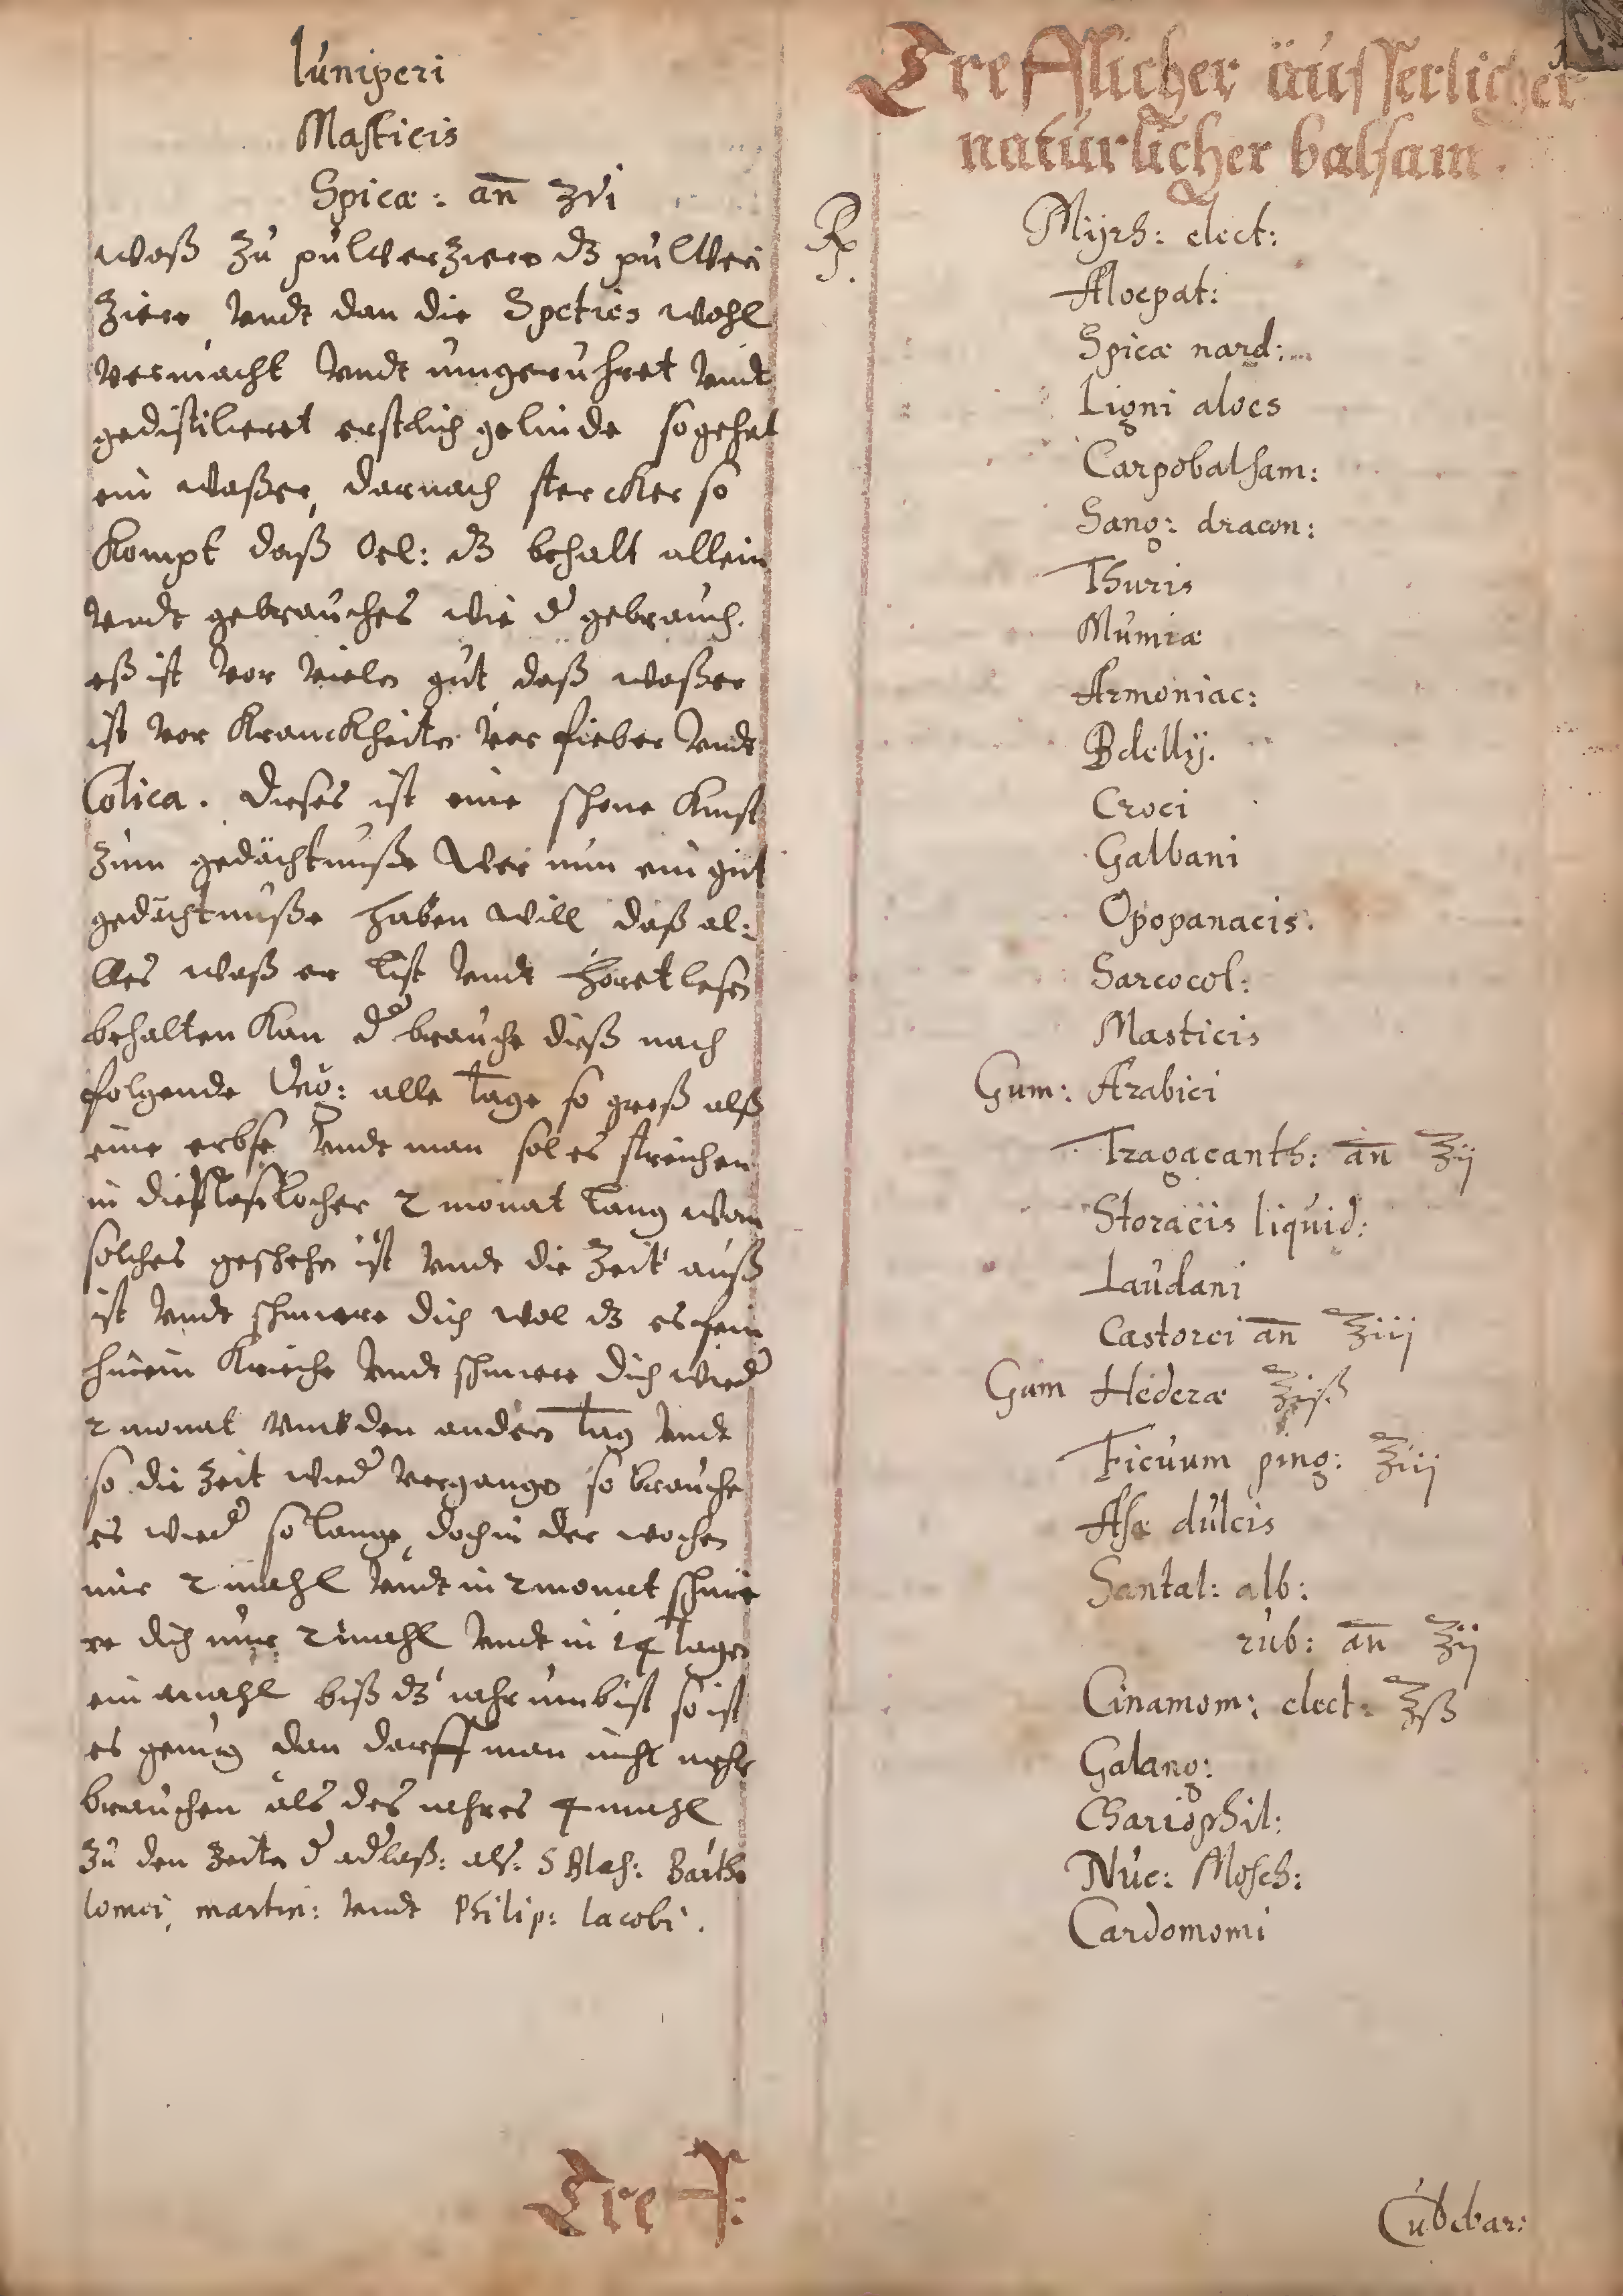 Iuniperi
Masticis
Spicæ: an̄ ʒvi
waß zu pulverziern dʒ pulveri
ziere, vndt dan die Speties wohl
vermacht vndt umgeruhret vndt
gedistilieret erstlich gelinde so gehet
ein waßer, darnach stercker so
kompt daß Oel: dʒ behalt allein
vndt gebrauches wie d' gebrauch.
eß ist vor vielen gut, daß waßer
ist vor Kranckheiten vor fieber vndt
Colica. Dieses ist eine schone kunst
zum gedächtnuße Wer nun ein gut
gedächtnuße haben will daß al:
lles waß er list vndt horet lesen
behalten kan d' brauche dieß nach
folgende alle tage so groß alß
eine erbse vndt man sol es streichen
in die locher 2 monat lang wan
solches geschehen ist vndt die Zeit auß
ist vndt schmiere dich wol dʒ es fein
hinein krieche vndt schmiere dich wied'
2 monat vmb den andern tag vndt
so die Zeit wied' vergangen so brauche
es wied' so lange, doch in der wochen
nur 2 mahl vndt in 2 monat schmie
re dich nur 2 mahl vndt in 14 tagen
ein mahl biß dʒ iahr umb ist so ist
es genug dan darff man nicht mehr
brauchen als des iahres 4 mahl
zu den Zeiten d' adlaß: als: S Blas: Bartho
lomei, martin: vndt Philip: Iacobi.
Treff:
Trefflicher äusserlicher
naturlicher balsam.
℞.
Mijrh: elect:
Aloepat:
Spicæ nard:
Ligni aloes
Carpobalsam:
Sang: dracon:
Thuris
Mumiæ
Armoniac:
Bdellij.
Croci
Galbani
Opopanacis.
Sarcocol:
Masticis
Gum: Arabici
Tragacanth: an̄ ʒij
Storacis liquid:
Laudani
Castorei an̄ ʒiij
Gum Hederæ ʒiß
Ficuum ping: ʒiij
Asæ dulcis
Santal: alb:
rub: an̄ ʒij
Cinamom: elect: ʒß
Galang:
Chariophil:
Nuc: Mosch:
Cardomomi
Cubebar: